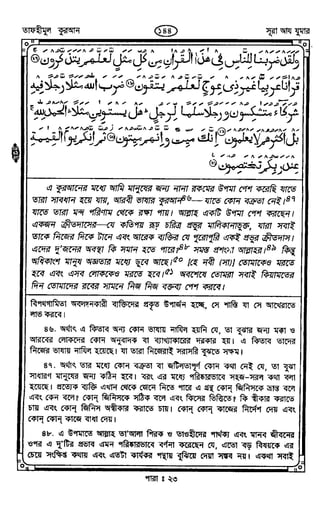 তাফহীমুল কুরআন
১৪৪
সূরা আয যুমার
وَلَقَدْ ضَرَبْنَا لِلنَّاسِ فِي هٰذَا الْقُرْاٰنِ مِنْ كُلِّ مَثَلٍ لَّعَلَّهُمْ يَتَذَكَّرُوْنَ ۝
قُرْاٰنًا عَرَبِيًّا غَيْرَ ذِيْ عِوَجٍ لَّعَلَّهُمْ يَتَّقُوْنَ ۝ ضَرَبَ اللّٰهُ مَثَلًا رَّجُلًا فِيْهِ
شُرَكَآءُ مُتَشٰكِسُوْنَ وَرَجُلًا سَلَمًا لِّرَجُلٍ هَلْ يَسْتَوِيٰنِ مَثَلًا اَلْحَمْدُ لِلّٰهِ
بَلْ اَكْثَرُهُمْ لَا يَعْلَمُوْنَ ۝ اِنَّكَ مَيِّتٌ وَّاِنَّهُمْ مَّيِّتُوْنَ ۝ ثُمَّ اِنَّكُمْ يَوْمَ الْقِيٰمَةِ
عِنْدَ رَبِّكُمْ تَخْتَصِمُوْنَ ۝
এ কুরআনের মধ্যে আমি মানুষের জন্য নানা রকমের উপমা পেশ করেছি যাতে
তারা সাবধান হয়ে যায়, আরবী ভাষার কুরআন৪৬—যাতে কোন বক্রতা নেই।৪৭
যাতে তারা মন্দ পরিণাম থেকে রক্ষা পায়। আল্লাহ একটি উপমা পেশ করছেন।
একজন ক্রীতদাসের—যে কতিপয় রূঢ় চরিত্র প্রভুর মালিকানাভুক্ত, যারা সবাই
তাকে নিজের দিকে টানে এবং আরেক ব্যক্তির যে পুরোপুরি একই প্রভুর ক্রীতদাস।
এদের দু'জনের অবস্থা কি সমান হতে পারে?৪৮ সমস্ত প্রশংসা আল্লাহর।৪৯ কিন্তু
অধিকাংশ মানুষ অজ্ঞতার মধ্যে ডুবে আছে।৫০ [হে নবী (সা)] তোমাকেও মরতে
হবে এবং এসব লোককেও মরতে হবে।৫১ অবশেষে তোমরা সবাই কিয়ামতের
দিন তোমাদের রবের সামনে নিজ নিজ বক্তব্য পেশ করবে।
বিপথগামিতা অবলম্বনকারী ব্যক্তিদের প্রকৃত উপার্জন হচ্ছে, সে শাস্তি যা সে আখেরাতে
লাভ করবে।
৪৬. অর্থাৎ এ কিতাব অন্য কোন ভাষায় নাযিল হয়নি যে, তা বুঝার জন্য মক্কা ও
আরবের লোকদের কোন অনুবাদক বা ব্যাখ্যাকারের দরকার হয়। এ কিতাব তাদের
নিজের ভাষায় নাযিল হয়েছে। যা তারা নিজেরাই সরাসরি বুঝতে সক্ষম।
৪৭. অর্থাৎ তার মধ্যে কোন বক্রতা বা জটিলতাপূর্ণ কোন কথা নেই যে, তা বুঝা
সাধারণ মানুষের জন্য কঠিন হবে। বরং এর মধ্যে পরিষ্কারভাবে সহজ-সরল কথা বলা
হয়েছে। প্রত্যেক ব্যক্তি এখান থেকে জেনে নিতে পারে এ গ্রন্থ কোন্ জিনিসকে ভ্রান্ত বলে
এবং কেন বলে? কোন্ জিনিসকে সঠিক বলে এবং কিসের ভিত্তিতে? কি স্বীকার করাতে
চায় এবং কোন্ জিনিস অস্বীকার করাতে চায়। কোন্ কোন্ কাজের নির্দেশ দেয় এবং
কোন্ কোন্ কাজে বাধা দেয়।
৪৮. এ উপমাতে আল্লাহ তা'আলা শিরক ও তাওহীদের পার্থক্য এবং মানব জীবনের
ওপর এ দু'টির প্রভাব এমন পরিষ্কারভাবে বর্ণনা করেছেন যে, এতো বড় বিষয়কে এর
চেয়ে সংক্ষিপ্ত কথায় এবং এতটা কার্যকর পন্থায় বুঝিয়ে দেয়া সম্ভব নয়। একথা সবাই
পারা : ২৩